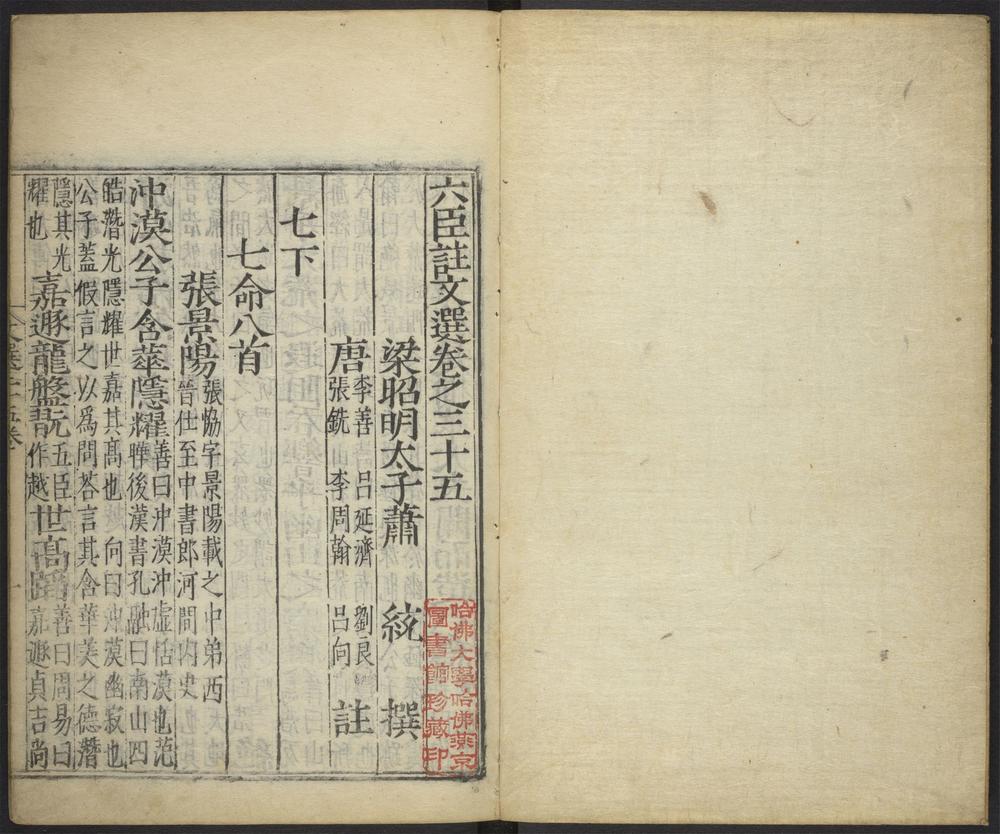 六臣註文選卷之三十五
梁昭明太子蕭統撰
唐李善呂延濟劉良張銑李周翰呂向註
七下
七命八首
張景陽張恊字景陽載之中弟西
晉仕至中書郎河間內史
沖漠公子含華隱耀善曰沖漠沖虛恬漠也范
曄後漢書孔融曰南山四
皓潛光隱耀世嘉其髙也向曰沖漠幽寂也
公子蓋假言之以爲問荅言其含華美之德潛
隱其光
耀也嘉遯龍盤翫五臣
作越世髙蹈善曰周易曰
嘉遯貞吉尚
哈佛大學哈佛燕京
圖書館珍藏印